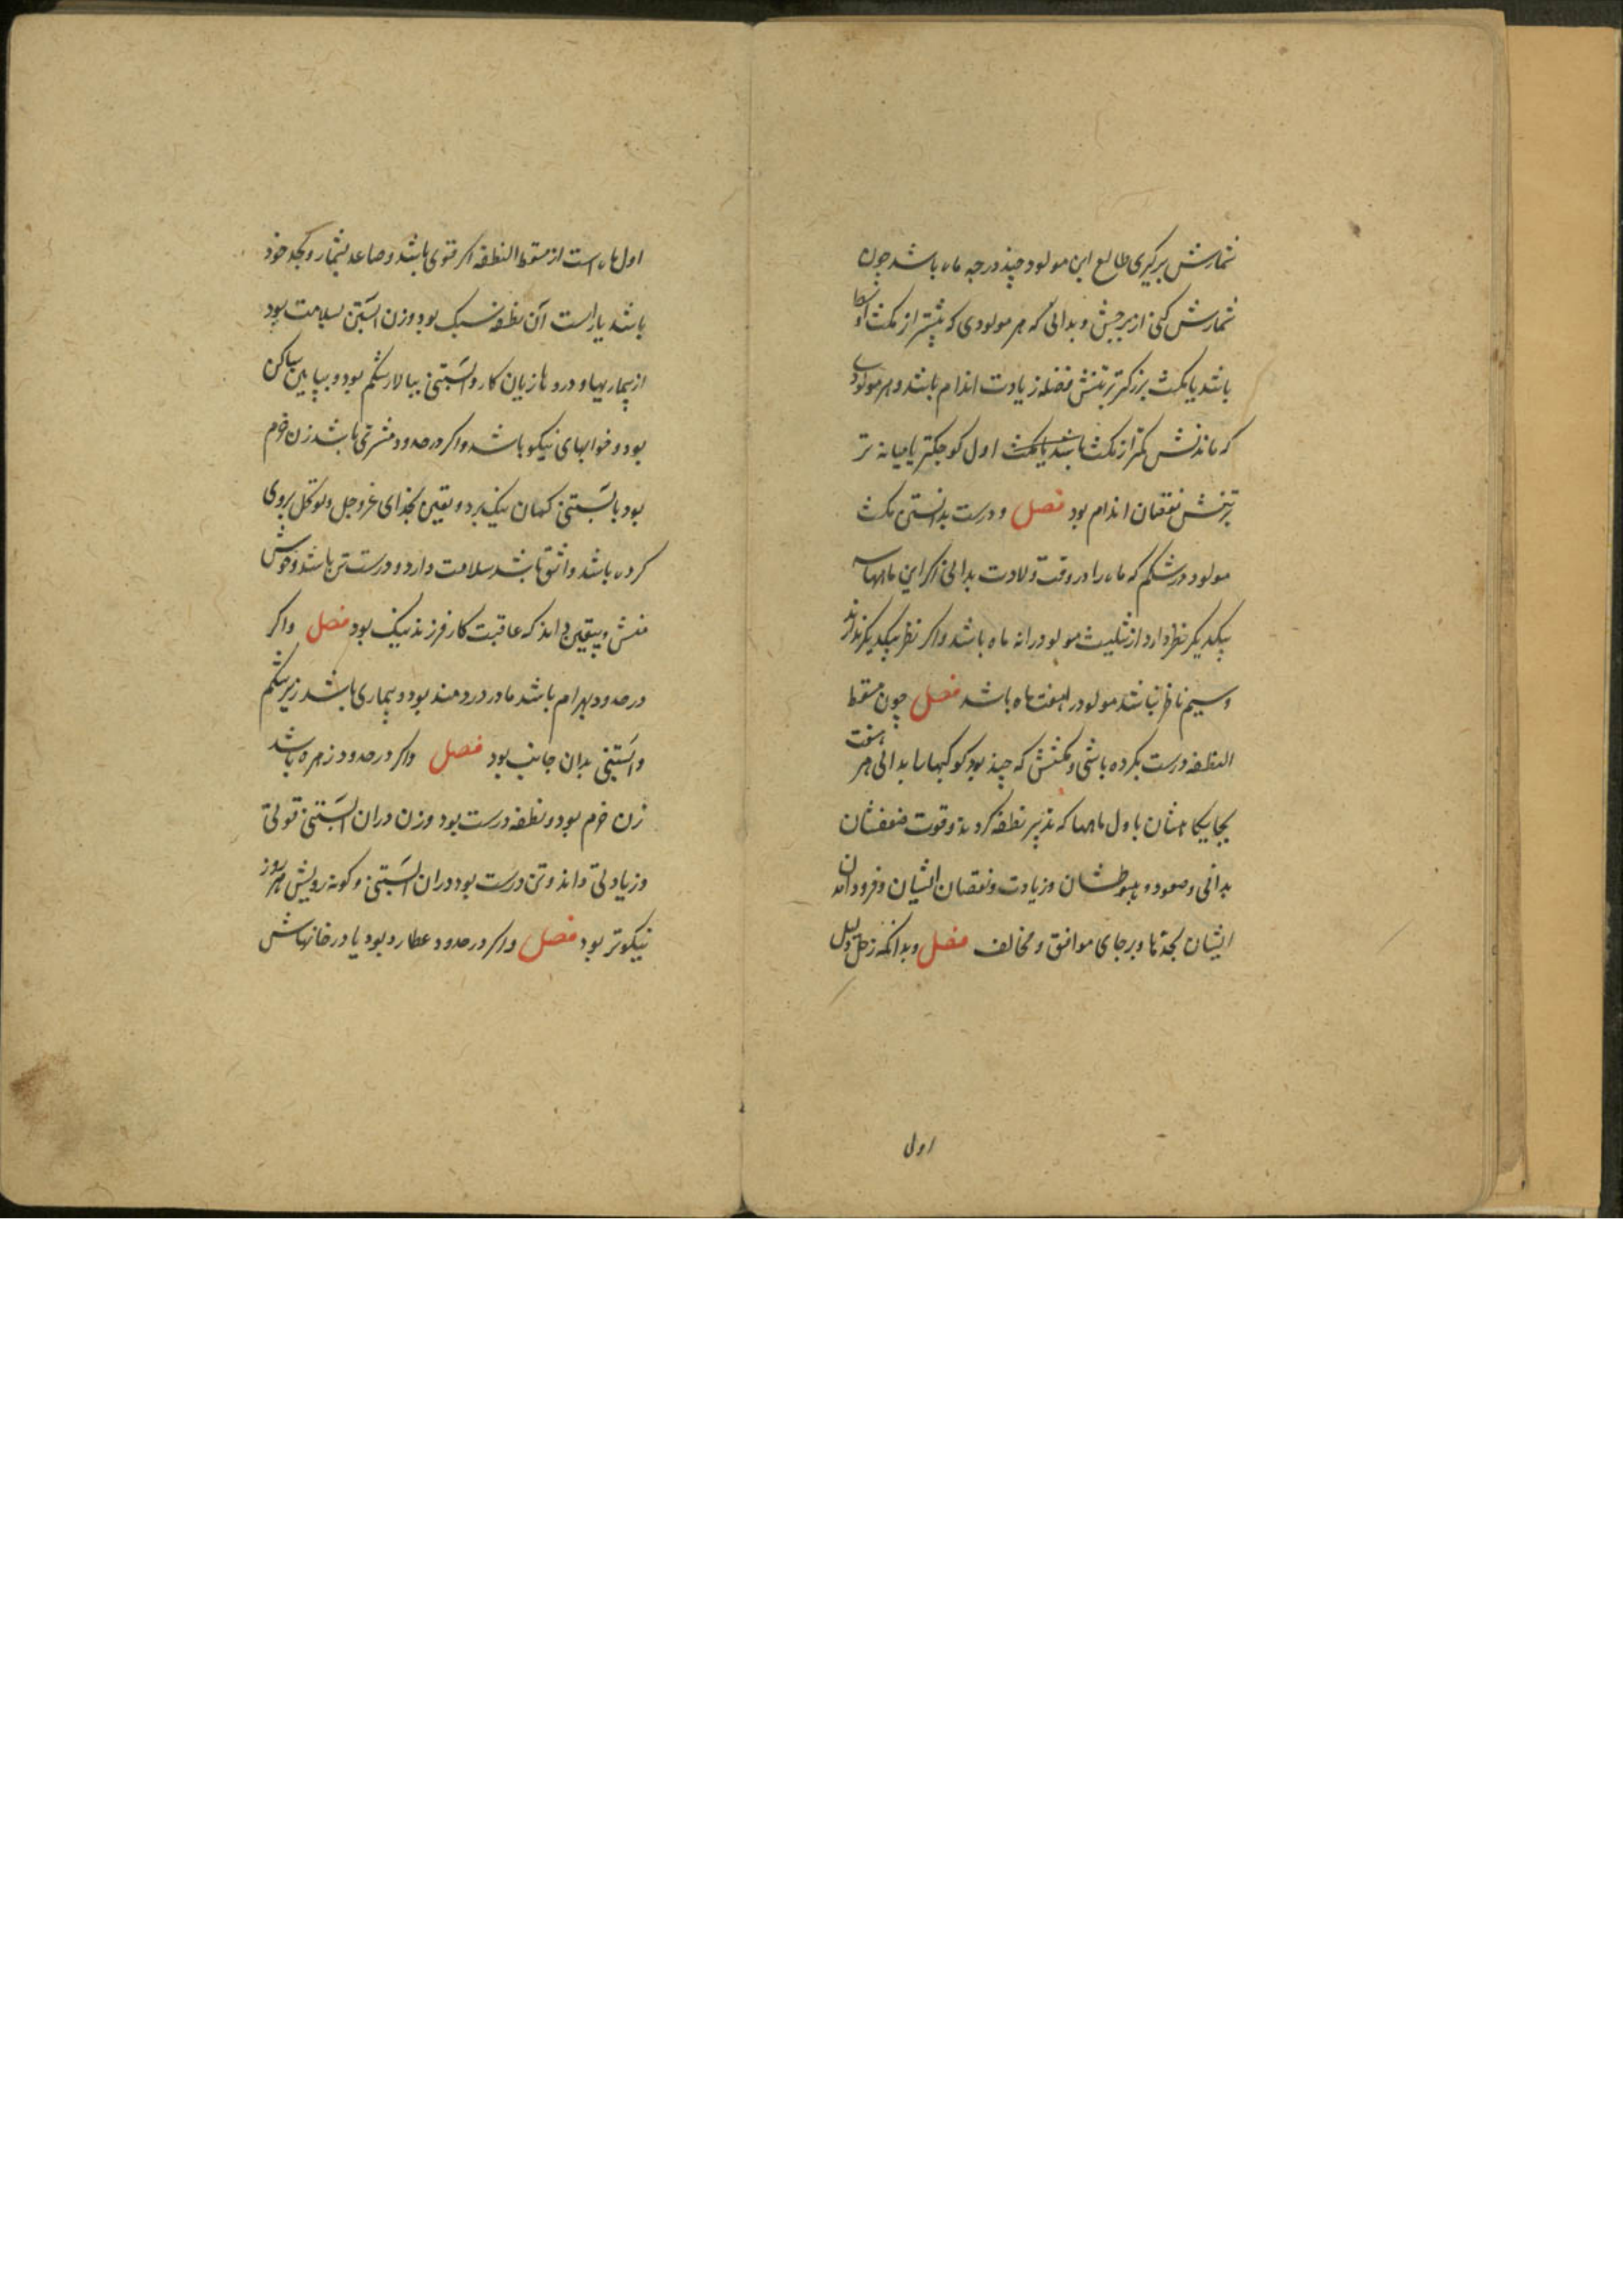 شمارش برگیری طالع این مولود چند درجه ماه باشد چون
شمارش کنی از برجش و بدانی که هر مولودی که بیشتر از مکث
باشد یا مکث بزرگتر برتنش فضله زیادت اندام باشد و هر مولودی
که ماندنش کمتر از مکث باشد یا مکث اول کوچکتر یا میانه تر
برتنش نقصان اندام بود فصل و درست بدانستن مکث
مولود در شکم که ماه را در وقت ولادت بدانی اگر این ماهها
بیکدیگر نظر دارد از تثلیث مولود را نه ماه باشد و اگر نظر بیکدیگر ندارند
و سیم ناظر نباشد مولود را هفت ماه باشد فصل چون مسقط
النطفه درست بکرده باشی و مکثش که چند بود کوکبها را بدانی هر هفت
یجایگاهشان باول ماهها که تدبیر نطفه کردند و قوت ضعفشان
بدانی و صعود و هبوطشان و زیادت و نقصان ایشان و فرود آمدن
ایشان بحدها و برجای موافق و مخالف فصل و بدانکه زحل دلیل
اول
اول ماه است از مسقط النطفه اگر قوی باشد و صاعد بشمار و بحد خود
باشد یا راست آن نطفه سبک بود و زن آبستن بسلامت بود
از بیماریها و دردها زیان کار و آبستنی ببالار شکم بود و بپایین ساکن
بود و خوابهای نیکو باشد و اگر در حدود مشتری باشد زن خرم
بود بآبستنی گمان نیک برد و یقین بخدای عز و جل و توکل بروی
کرده باشد واثق باشد سلامت دارد و درست تن باشد و خوش
منش و بیقین داند که عاقبت کار فرزند نیک بود فصل و اگر
در حدود بهرام باشد مادر دردمند بود و بیماری باشد زیر شکم
و آبستنی بدان جانب بود فصل و اگر در حدود زهره باشد
زن خرم بود و نطفه درست بود و زن در آن آبستنی قوتی
و زیادتی داند و تن درست بود در آن آبستنی و گونه رویش هر روز
نیکوتر بود فصل و اگر در حدود عطارد بود یا در خانهاش